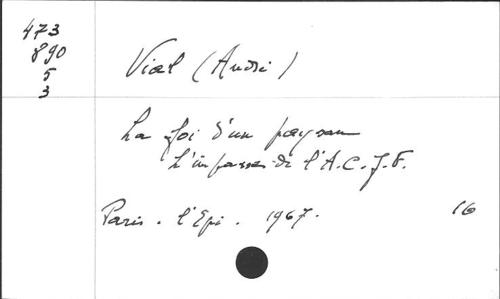 473
890
5
3
Vial (André)
La foi d'un paysan
L'impasse de l'A.C.J.F.
Paris. l'Epi. 1967. 16